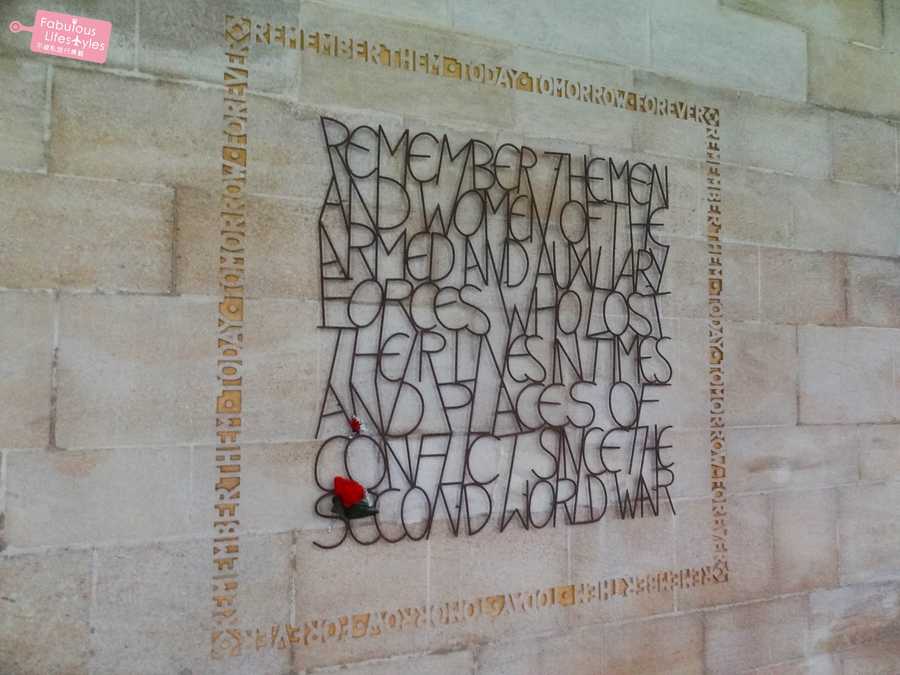 Fabulous
Lifestyles
REMEMBER THEM · TODAY · TOMORROW · FOREVER
REMEMBER THE MEN
AND WOMEN OF THE
ARMED AND AUXILIARY
FORCES WHO LOST
THEIR LIVES IN TIMES
AND PLACES OF
CONFLICT SINCE THE
SECOND WORLD WAR
REMEMBER THEM · TODAY · TOMORROW · FOREVER
REMEMBER THEM · TODAY · TOMORROW · FOREVER
REMEMBER THEM · TODAY · TOMORROW · FOREVER